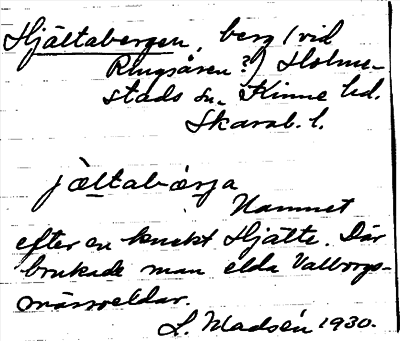 Hjältabergen, berg (vid
Ringsåsen?) Holme-
stads sn. Kinne hd.
Skarab. l.
jältabærja
Namnet
efter en knekt Hjälte. Där
brukade man elda Valborgs-
mässoeldar.
L. Madsén 1930.